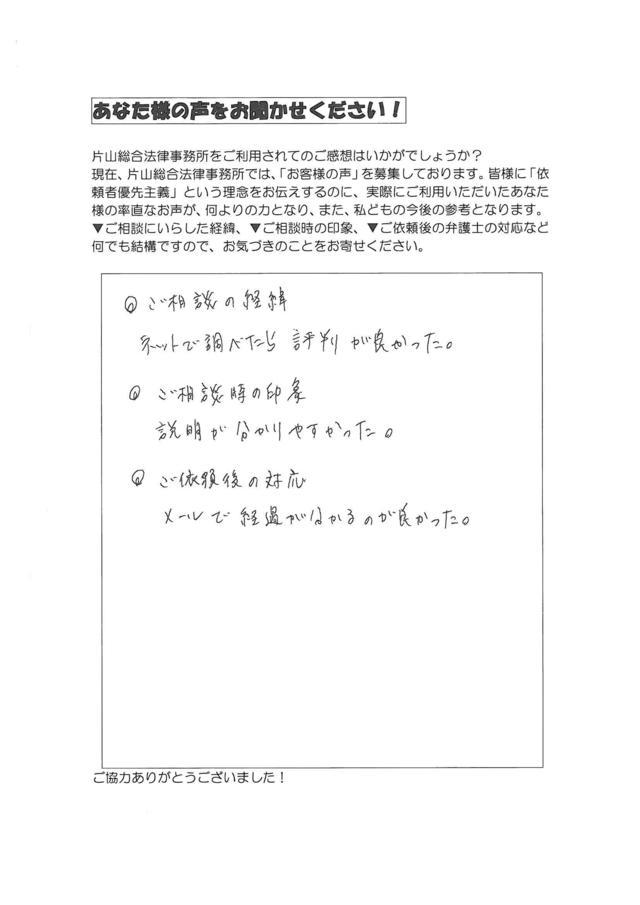 あなた様の声をお聞かせください！
片山総合法律事務所をご利用されてのご感想はいかがでしょうか？
現在、片山総合法律事務所では、「お客様の声」を募集しております。皆様に「依
頼者優先主義」という理念をお伝えするのに、実際にご利用いただいたあなた
様の率直なお声が、何よりの力となり、また、私どもの今後の参考となります。
▼ご相談にいらした経緯、▼ご相談時の印象、▼ご依頼後の弁護士の対応など
何でも結構ですので、お気づきのことをお寄せください。
◎ ご相談の経緯
ネットで調べたら 評判が良かった。
◎ ご相談時の印象
説明が分かりやすかった。
◎ ご依頼後の対応
メールで経過が分かるのが良かった。
ご協力ありがとうございました！